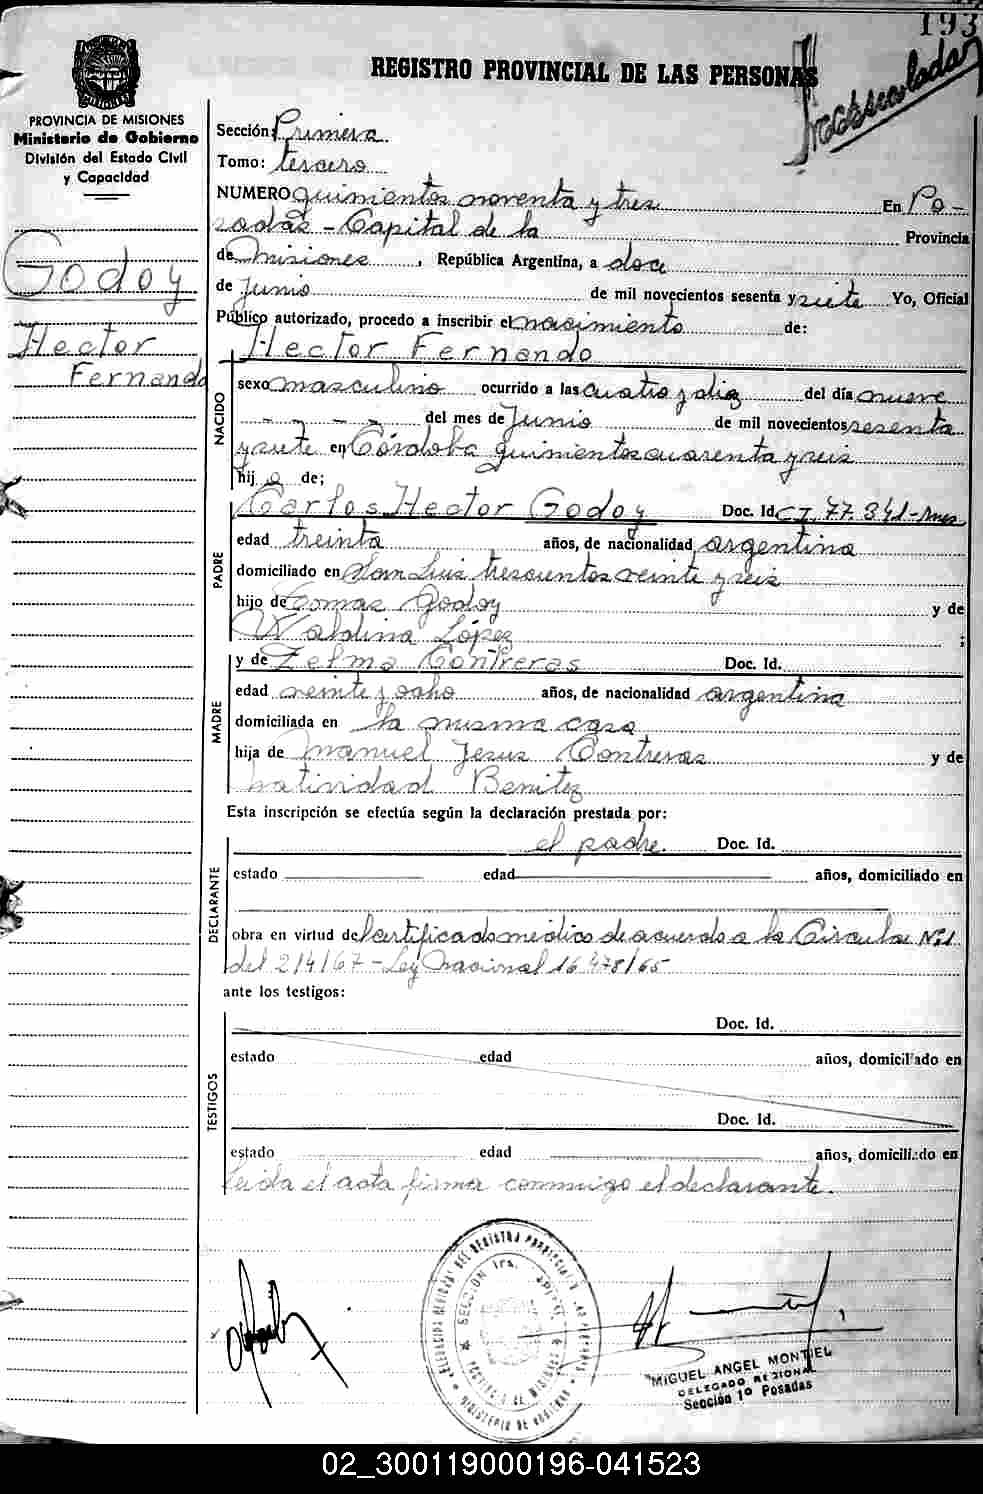 193
REGISTRO PROVINCIAL DE LAS PERSONAS
PROVINCIA DE MISIONES
Ministerio de Gobierno
División del Estado Civil
y Capacidad
Godoy
Hector
Fernando
Sección: Primera
Tomo: tercero
NUMERO quinientos noventa y tres En Po-
sadas - Capital de la Provincia
de Misiones, República Argentina, a doce
de Junio de mil novecientos sesenta y siete Yo, Oficial
Público autorizado, procedo a inscribir el nacimiento de:
Hector Fernando
NACIDO
sexo masculino ocurrido a las cuatro y diez del día nueve
- - - - del mes de Junio de mil novecientos sesenta
y siete en Córdoba quinientos cuarenta y seis
hijo de;
PADRE
Carlos Hector Godoy Doc. Id. CI. 77.841-Mnes
edad treinta años, de nacionalidad argentina
domiciliado en San Luis trescientos veinte y seis
hijo de Tomas Godoy y de
Waldina López ;
MADRE
y de Zelma Contreras Doc. Id.
edad veinte y ocho años, de nacionalidad argentina
domiciliada en la misma casa
hija de Manuel Jesus Contreras y de
Natividad Benitez
Esta inscripción se efectúa según la declaración prestada por:
DECLARANTE
el padre. Doc. Id.
estado edad años, domiciliado en
obra en virtud del certificado médico de acuerdo a la Circular Nº1
del 2/4/67 - Ley Nacional 16.478/65
ante los testigos:
TESTIGOS
Doc. Id.
estado edad años, domiciliado en
Doc. Id.
estado edad años, domiciliado en
Leida el acta firma conmigo el declarante.
SECCIÓN 1ra.
MINISTERIO DE GOBIERNO
MIGUEL ANGEL MONTIEL
DELEGADO REGIONAL
Sección 1º Posadas
02_300119000196-041523